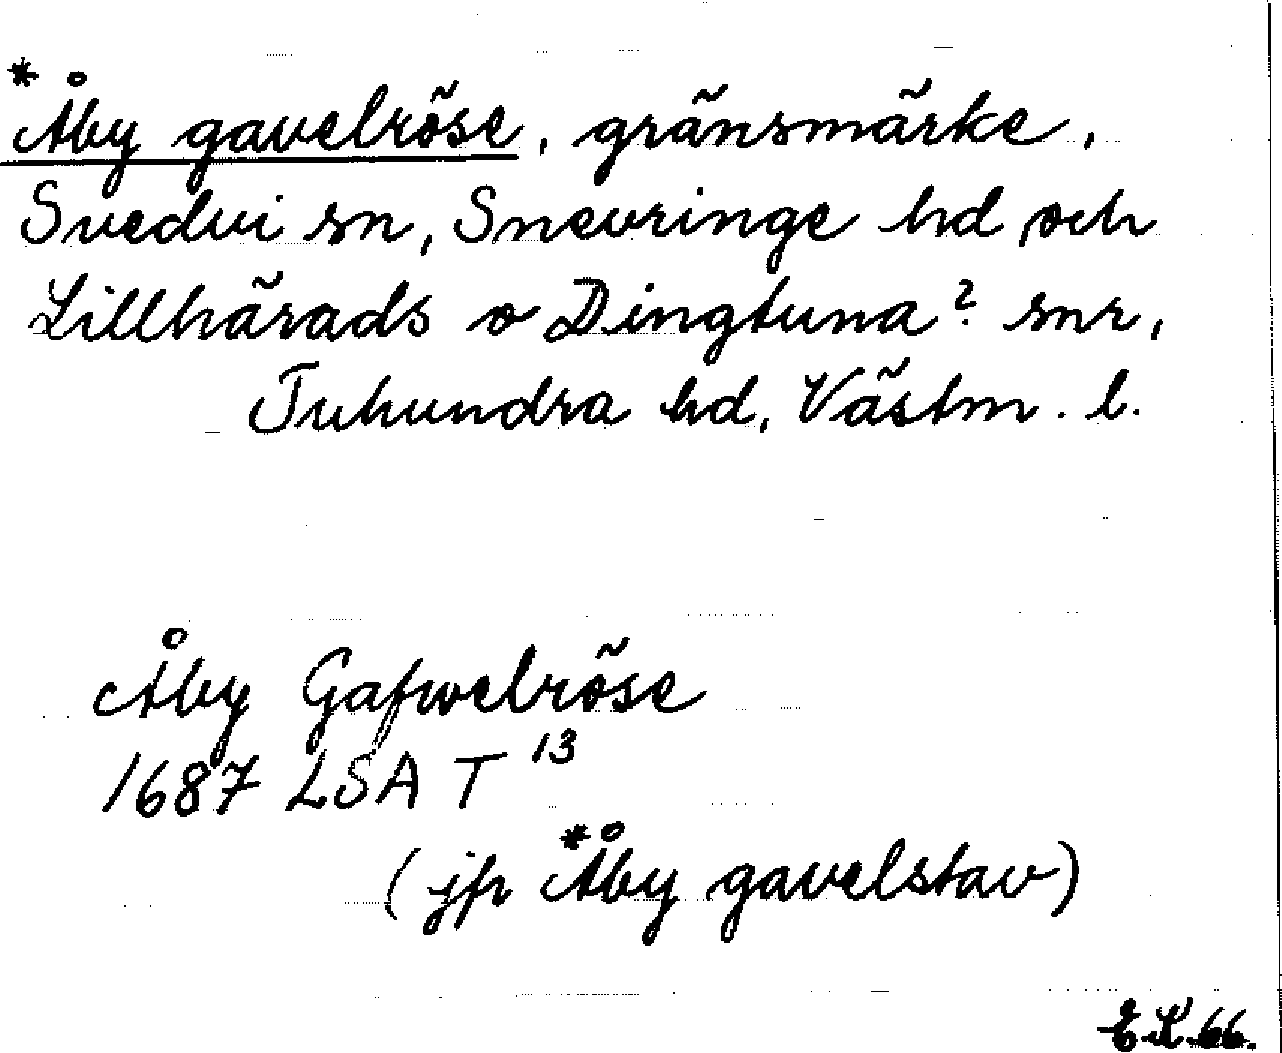 *Åby gavelröse, gränsmärke,
Svedvi sn, Snevringe hd och
Lillhärads o Dingtuna? snr,
Tuhundra hd, Västm. l.
Åby Gafwelröse
1687 LSA T 13
(jfr *Åby gavelstav)
E K. 66.